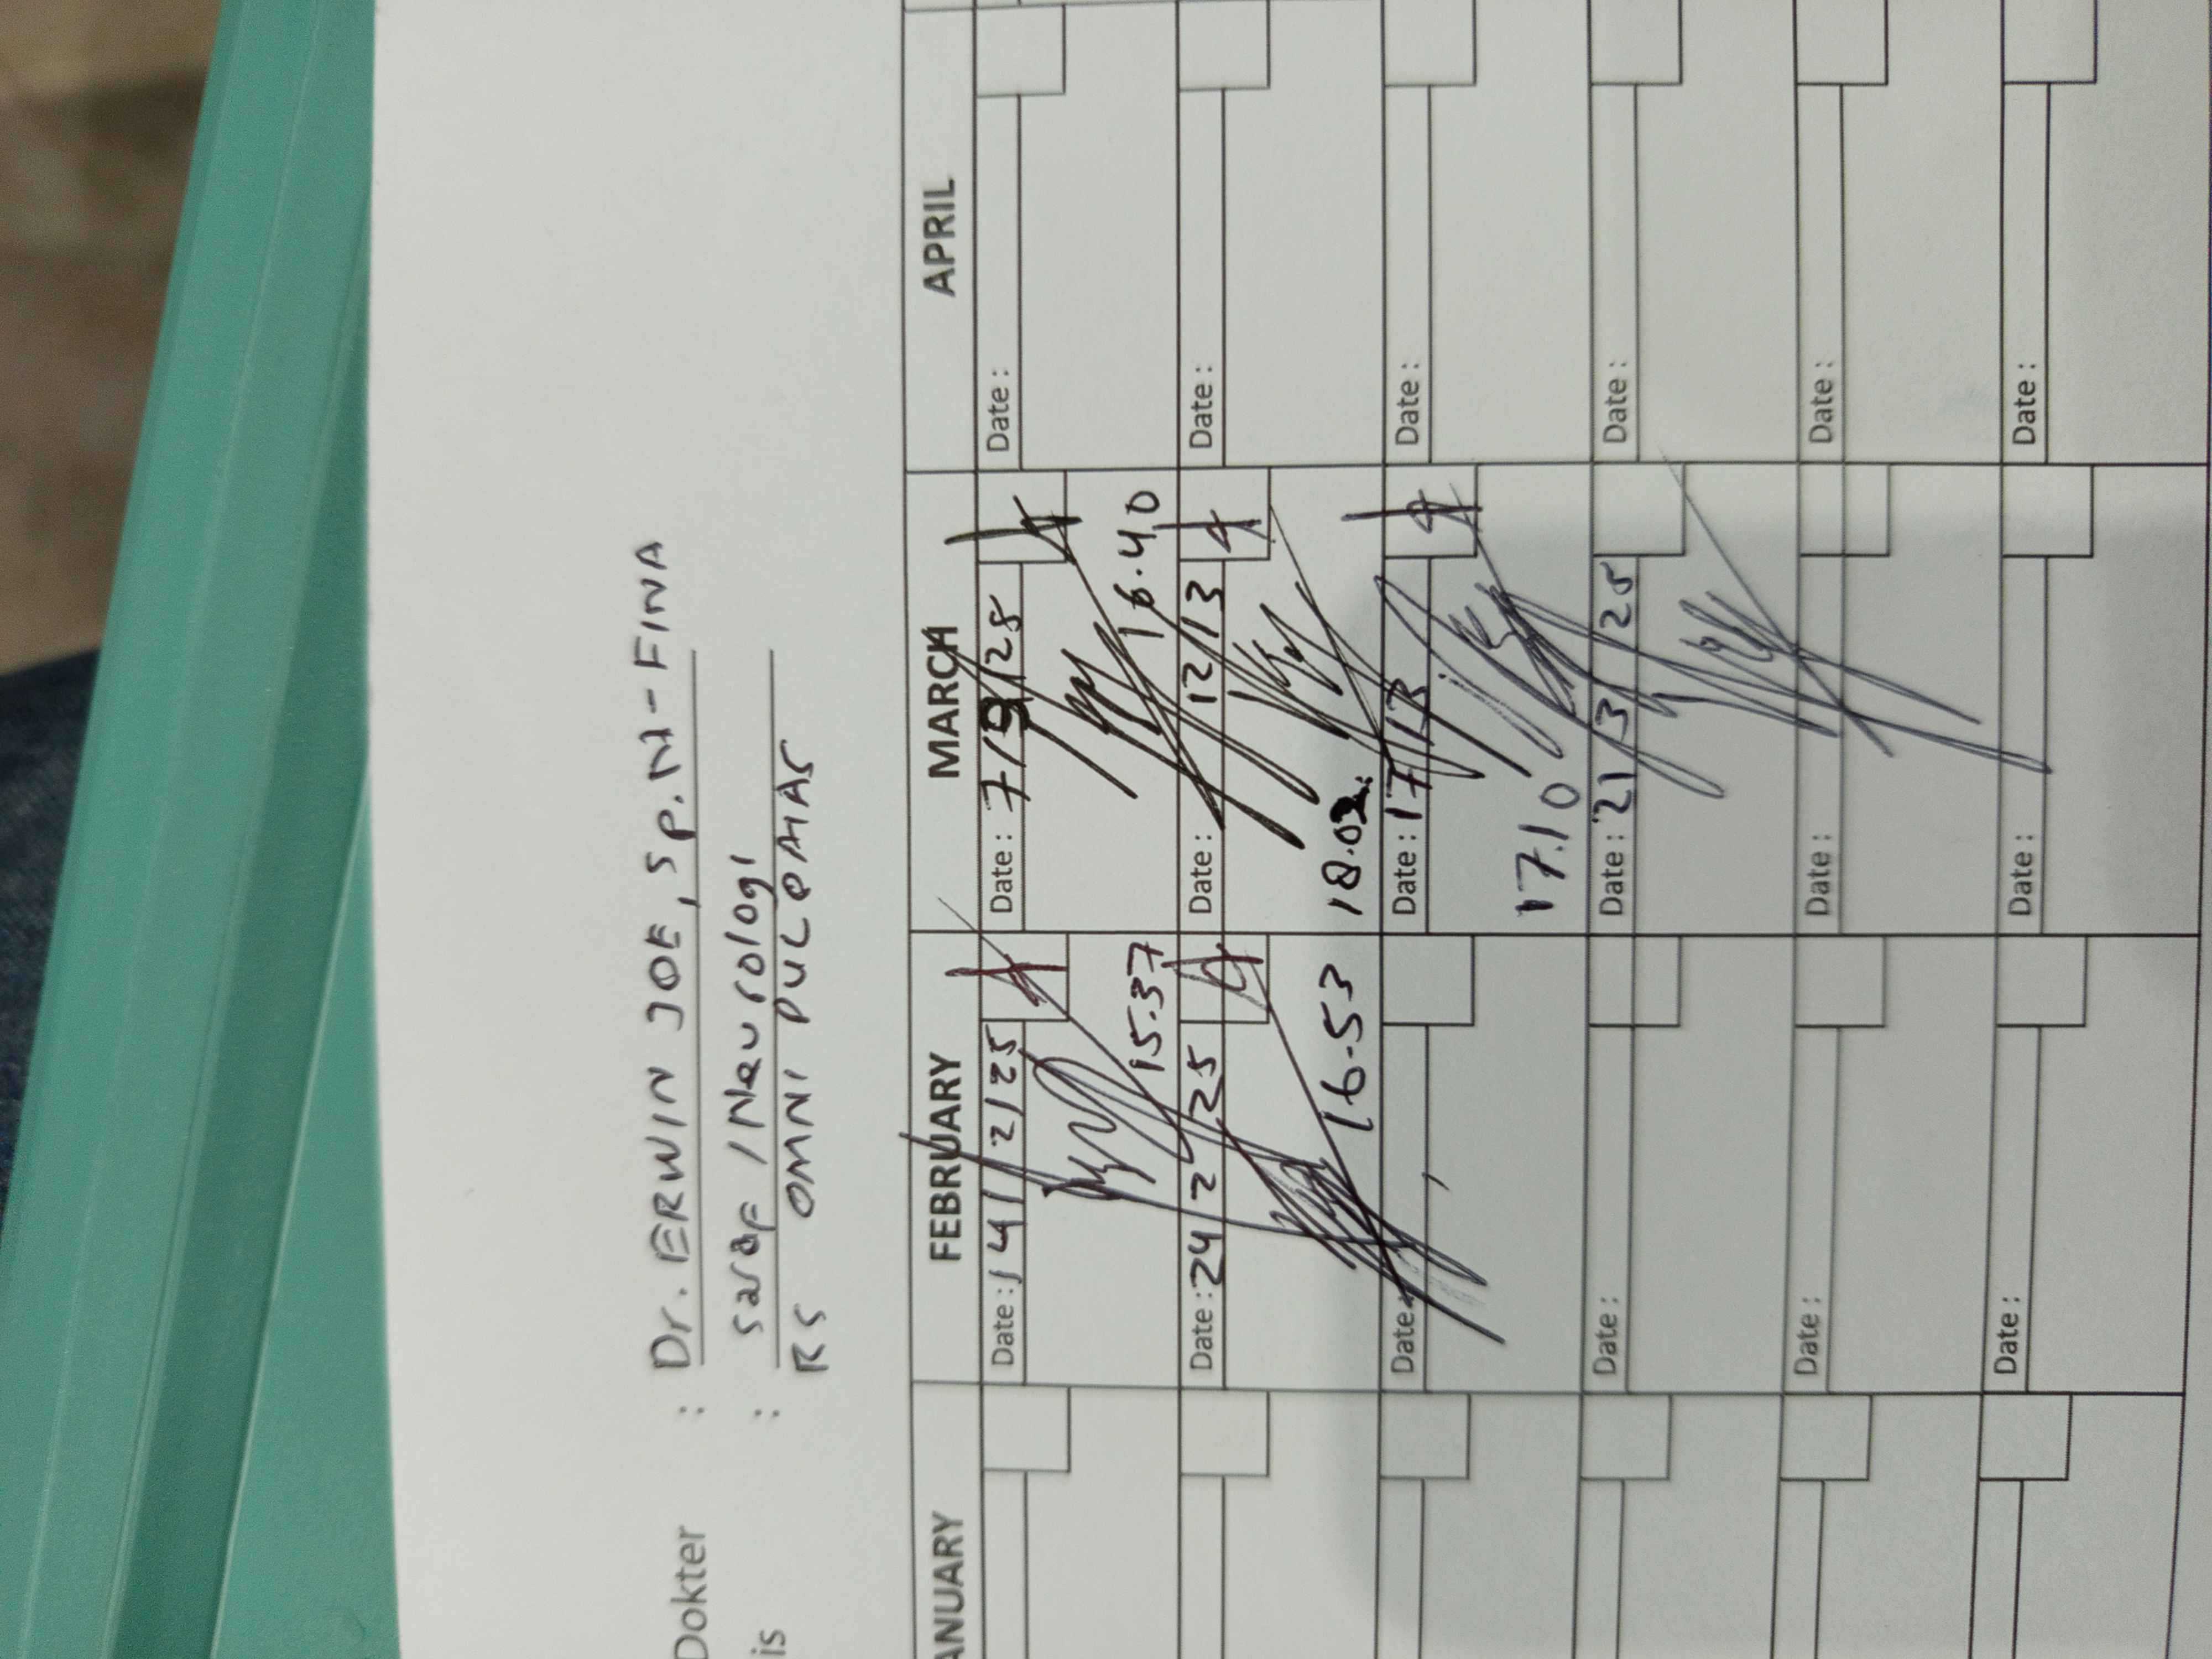 Dokter : Dr. ERWIN JOE, Sp.N - FINA
is : Saraf / Neurologi
RS OMNI PULOMAS
ANUARY FEBRUARY MARCH APRIL
Date : 14 / 2 / 25 Date : 7 / 3 / 25 Date :
15.37 16.40
Date : 24 2 25 Date : 12 / 3 Date :
16.53 18.02
Date : Date : 17 / 3 Date :
17.10
Date : Date : 21 / 3 / 25 Date :
Date : Date : Date :
Date : Date : Date :